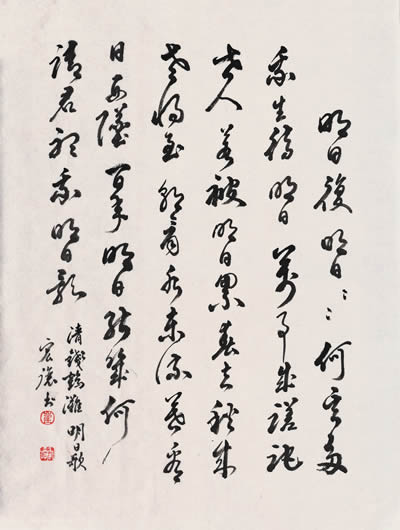 明日復明日々々何其多
我生待明日萬事成蹉跎
世人若被明日累春去秋來
老將至朝看水東流暮看
日西墜百年明日能幾何
請君聽我明日歌
清錢鶴灘明日歌
宏書